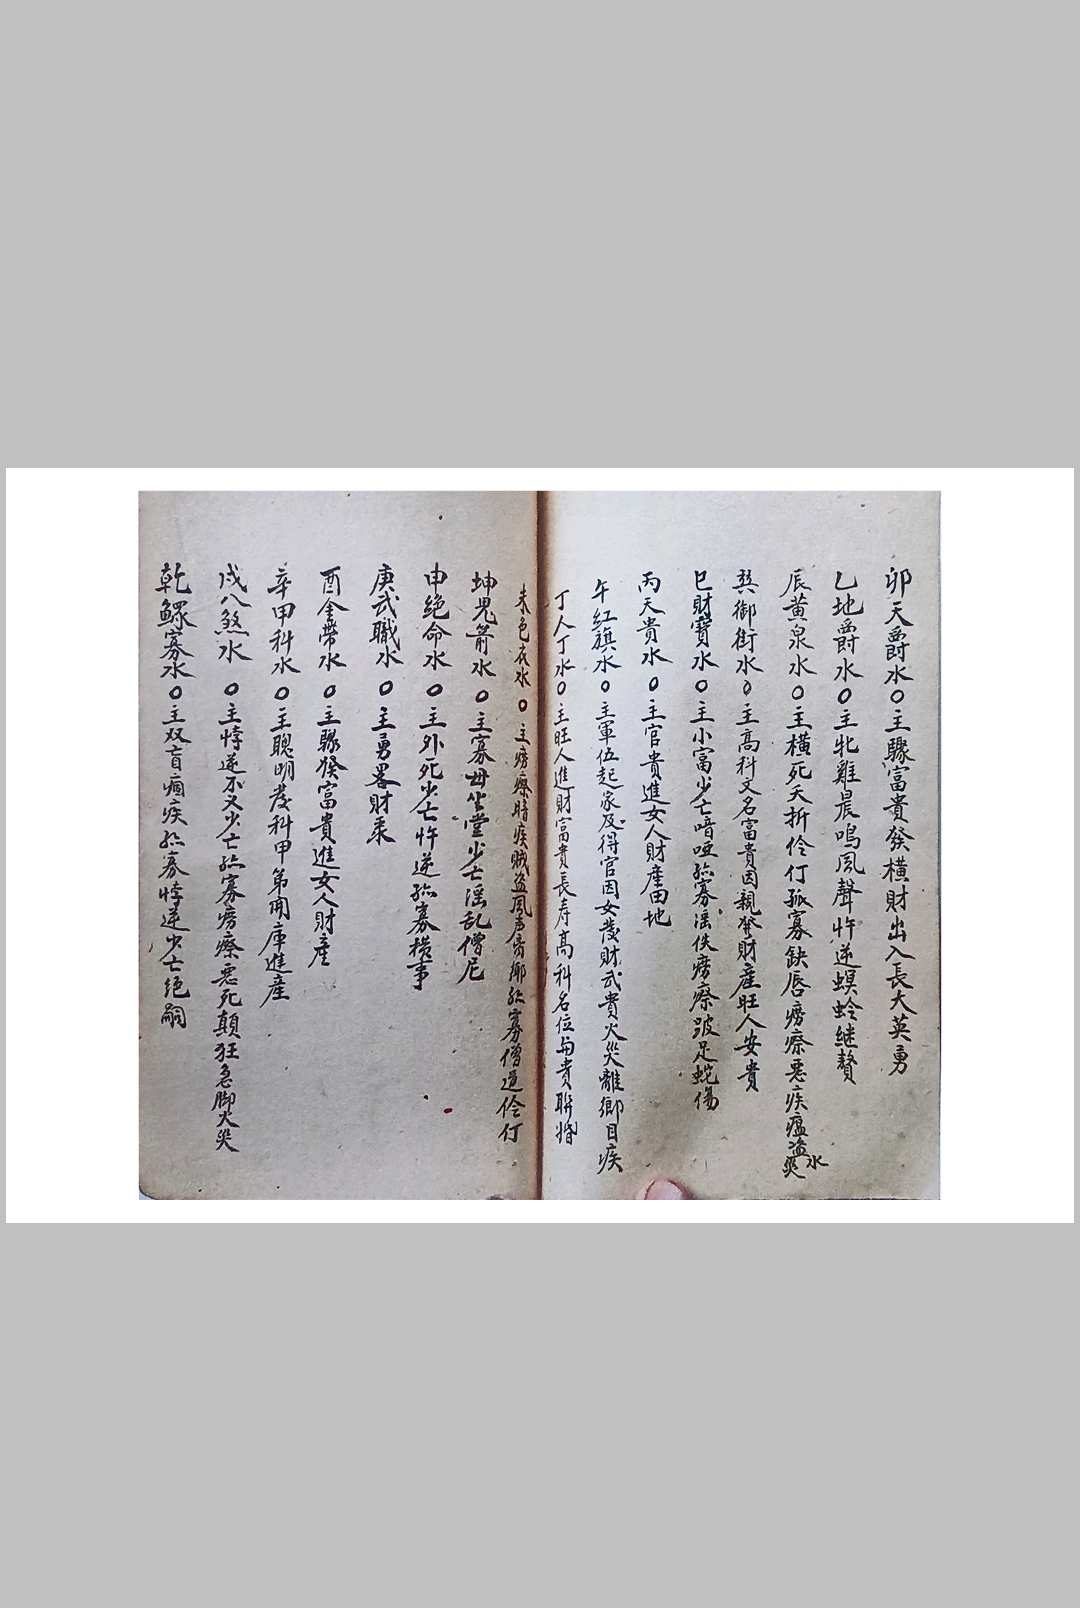 卯天爵水○主驟富貴發橫財出入長大英勇
乙地爵水○主牝雞晨鳴風聲忤逆螟蛉継贅
辰黄泉水○主橫死夭折伶仃孤寡缺唇癆瘵惡疾瘟盗水災
巽御街水○主高科文名富貴因親發財産旺人安貴
巳財寶水○主小富少亡喑啞孤寡淫佚癆瘵跛足蛇傷
丙天貴水○主官貴進女人財産田地
午紅旗水○主軍伍起家及得官因女發財武貴火災離鄉目疾
丁人丁水○主旺人進財富貴長寿高科名位与貴聨婚
未色衣水○主癆瘵暗疾賊盗風声寡僧道伶仃
坤鬼箭水○主寡母坐堂少亡淫乱僧尼
申绝命水○主外死少亡忤逆孤寡横事
庚武職水○主勇畧財禾
酉金帶水○主驟發富貴進女人財產
辛甲科水○主聰明發科甲弟開庫進産
戌八煞水○主悖逆不义少亡孤寡癆瘵惡死顛狂急脚火災
乾鰥寡水○主双盲痼疾孤寡悖逆少亡绝嗣